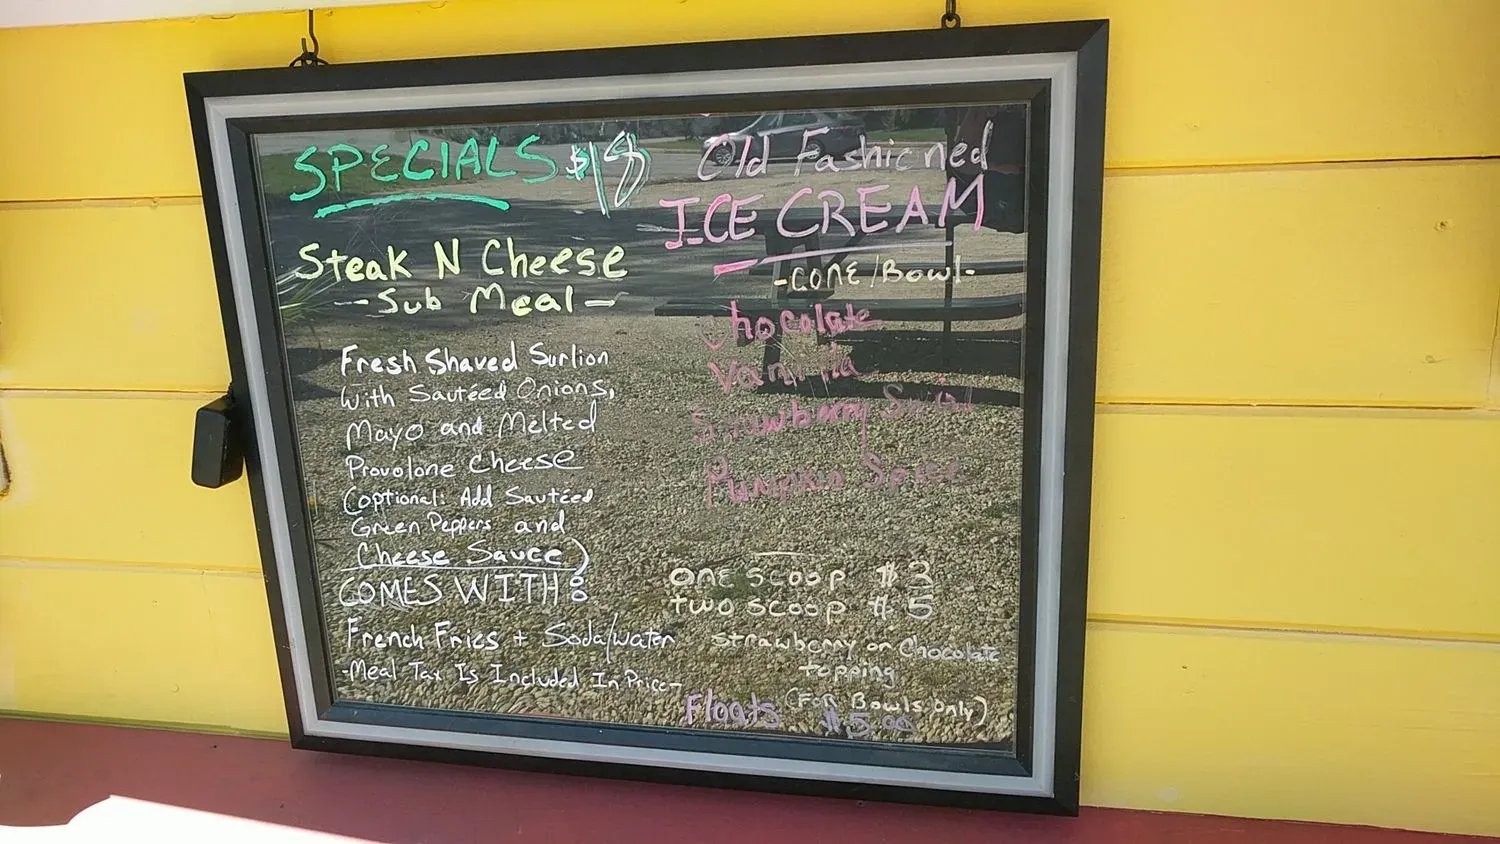 SPECIALS $18
Steak N Cheese
-Sub Meal-
Fresh Shaved Surlion
With Sautéed Onions,
Mayo and Melted
Provolone Cheese
(optional: Add Sautéed
Green Peppers and
Cheese Sauce)
COMES WITH:
French Fries + Soda/water
-Meal Tax Is Included In Price-
Old Fashioned
ICE CREAM
-CONE/Bowl-
Chocolate
Vanilla
Strawberry Swirl
Pumpkin Spice
ONE SCOOP $3
TWO SCOOP $5
Strawberry or Chocolate
topping
(FOR Bowls Only)
Floats $5.00